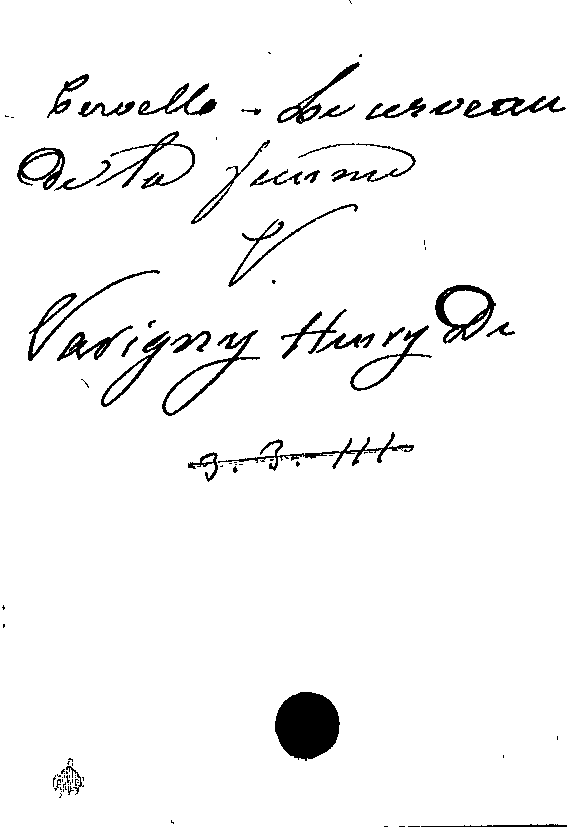 Cervello - Le cerveau
De la femme
V.
Varigny Henry De
3. 3. 111